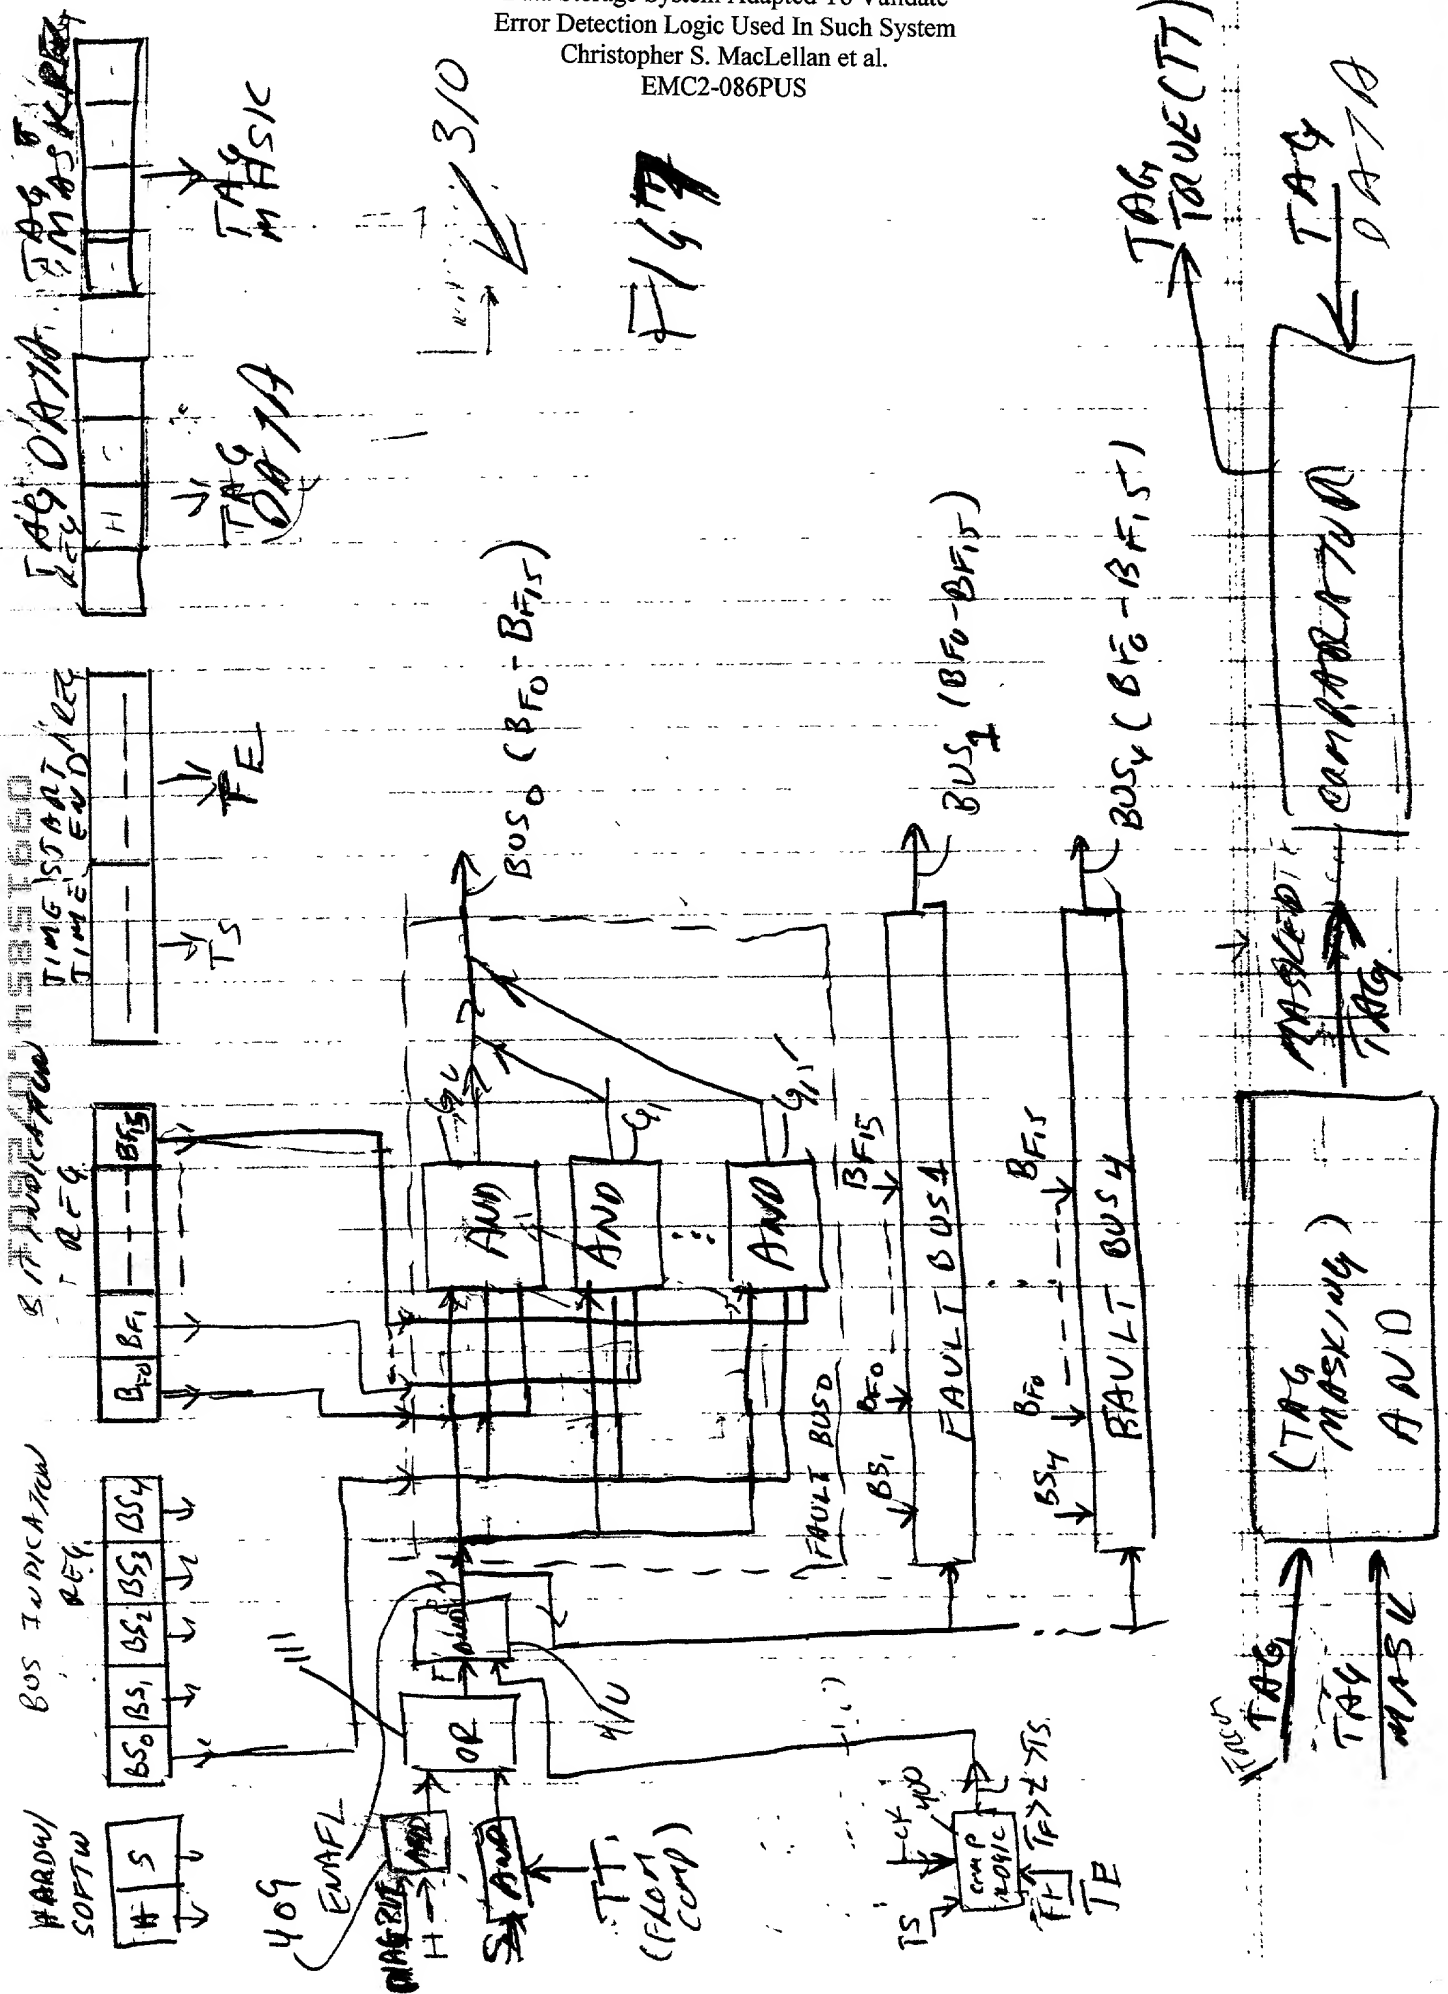 Error Detection Logic Used In Such System
Christopher S. MacLellan et al.
EMC2-086PUS
HARDW/
SOFTW
H S
BUS INDICATION
REG.
BS0 BS1 BS2 BS3 BS4
REG.
BF0 BF1 BF15
TIME START
TIME END REG
TS
TE
TAG DATA
REG
TAG
DATA
TAG
MASK REG
TAG
MASK
310
FIG 17
409
ENAFL
111
H
AND
S
AND
TT
(FROM
COMP)
OR
AND
410
AND
G0
AND
G1
AND
G15
BUS0 (BF0-BF15)
FAULT BUS0
BS1 BF0 BF15
FAULT BUS1
BUS1 (BF0-BF15)
BS4 BF0 BF15
FAULT BUS4
BUS4 (BF0-BF15)
TS
CK
400
COMP
LOGIC
TE
TAG
TAG
MASK
(TAG
MASKING)
AND
MASKED
TAG
COMPARATOR
TAG
TRUE (TT)
TAG
DATA